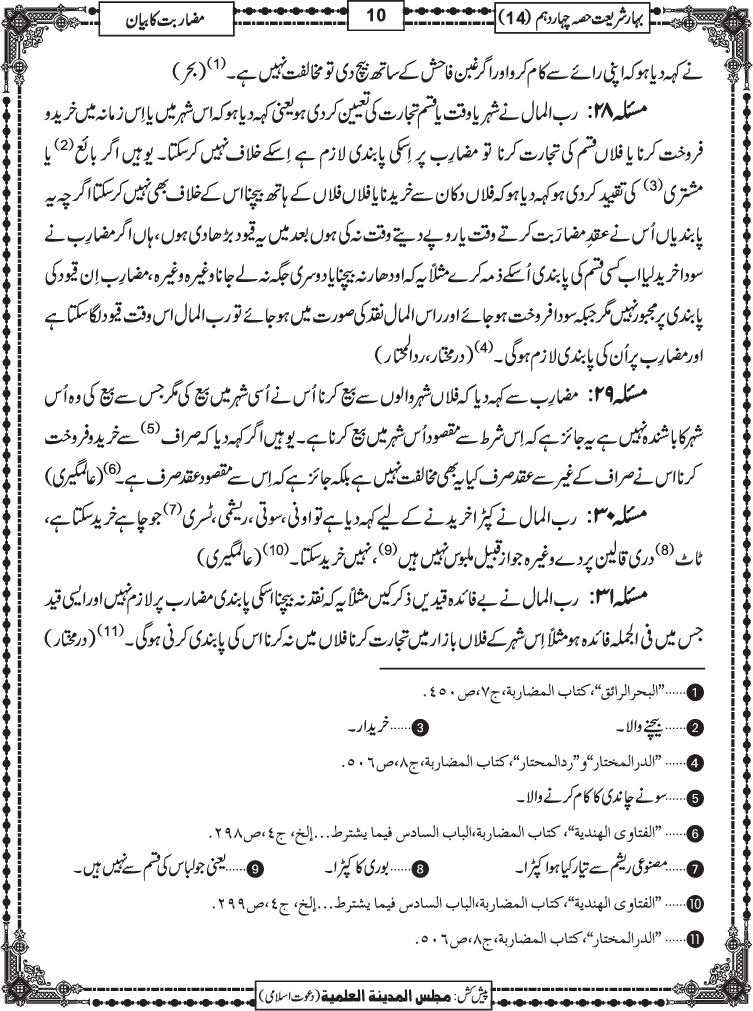 بہارِ شریعت حصہ چہاردہم (14)
10
مضاربت کا بیان
نے کہہ دیا ہو کہ اپنی رائے سے کام کرو اور اگر غبن فاحش کے ساتھ بیچ دی تو مخالفت نہیں ہے۔(1) (بحر)
مسئلہ ۲۸: رب المال نے شہر یا وقت یا قسم تجارت کی تعیین کر دی ہو یعنی کہہ دیا ہو کہ اس شہر میں یا اِس زمانہ میں خرید و
فروخت کرنا یا فلاں قسم کی تجارت کرنا تو مضارِب پر اِسکی پابندی لازم ہے اِسکے خلاف نہیں کر سکتا۔ یوہیں اگر بائع(2) یا
مشتری(3) کی تقیید کر دی ہو کہہ دیا ہو کہ فلاں دکان سے خریدنا یا فلاں فلاں کے ہاتھ بیچنا اس کے خلاف بھی نہیں کر سکتا اگرچہ یہ
پابندیاں اُس نے عقدِ مضارَبت کرتے وقت یا روپے دیتے وقت نہ کی ہوں بعد میں یہ قیود بڑھا دی ہوں، ہاں اگر مضارِب نے
سودا خرید لیا اب کسی قسم کی پابندی اُسکے ذمہ کرے مثلاً یہ کہ اودھار نہ بیچنا یا دوسری جگہ نہ لے جانا وغیرہ وغیرہ، مضارِب اِن قیود کی
پابندی پر مجبور نہیں مگر جبکہ سودا فروخت ہو جائے اور راس المال نقد کی صورت میں ہو جائے تو رب المال اس وقت قیود لگا سکتا ہے
اور مضارِب پر اُن کی پابندی لازم ہوگی۔(4) (درمختار، ردالمحتار)
مسئلہ ۲۹: مضارِب سے کہہ دیا کہ فلاں شہر والوں سے بیع کرنا اُس نے اُسی شہر میں بیع کی مگر جس سے بیع کی وہ اُس
شہر کا باشندہ نہیں ہے یہ جائز ہے کہ اِس شرط سے مقصود اُس شہر میں بیع کرنا ہے۔ یوہیں اگر کہہ دیا کہ صراف(5) سے خرید و فروخت
کرنا اس نے صراف کے غیر سے عقد صرف کیا یہ بھی مخالفت نہیں ہے بلکہ جائز ہے کہ اِس سے مقصود عقد صرف ہے۔(6) (عالمگیری)
مسئلہ ۳۰: رب المال نے کپڑا خریدنے کے لیے کہہ دیا ہے تو اونی، سوتی، ریشمی، ٹسری(7) جو چاہے خرید سکتا ہے،
ٹاٹ(8) دری قالین پردے وغیرہ جو از قبیل ملبوس نہیں ہیں(9)، نہیں خرید سکتا۔(10) (عالمگیری)
مسئلہ ۳۱: رب المال نے بے فائدہ قیدیں ذکر کیں مثلاً یہ کہ نقد نہ بیچنا اسکی پابندی مضارب پر لازم نہیں اور ایسی قید
جس میں فی الجملہ فائدہ ہو مثلاً اِس شہر کے فلاں بازار میں تجارت کرنا فلاں میں نہ کرنا اس کی پابندی کرنی ہوگی۔(11) (درمختار)
1 ......"البحرالرائق"، کتاب المضاربة، ج۷، ص٤٥٠.
2 ...... بیچنے والا۔ 3 ...... خریدار۔
4 ......"الدرالمختار" و"ردالمحتار"، کتاب المضاربة، ج۸، ص٥٠٦.
5 ......سونے چاندی کا کام کرنے والا۔
6 ......"الفتاوی الهندیة"، کتاب المضاربة، الباب السادس فیما یشترط...إلخ، ج٤، ص۲۹۸.
7 ......مصنوعی ریشم سے تیار کیا ہوا کپڑا۔ 8 ......بوری کا کپڑا۔ 9 ......یعنی جو لباس کی قسم سے نہیں ہیں۔
10 ......"الفتاوی الهندیة"، کتاب المضاربة، الباب السادس فیما یشترط...إلخ، ج٤، ص۲۹۹.
11 ......"الدرالمختار"، کتاب المضاربة، ج۸، ص٥٠٦.
پیش کش: مجلس المدینة العلمیة (دعوت اسلامی)